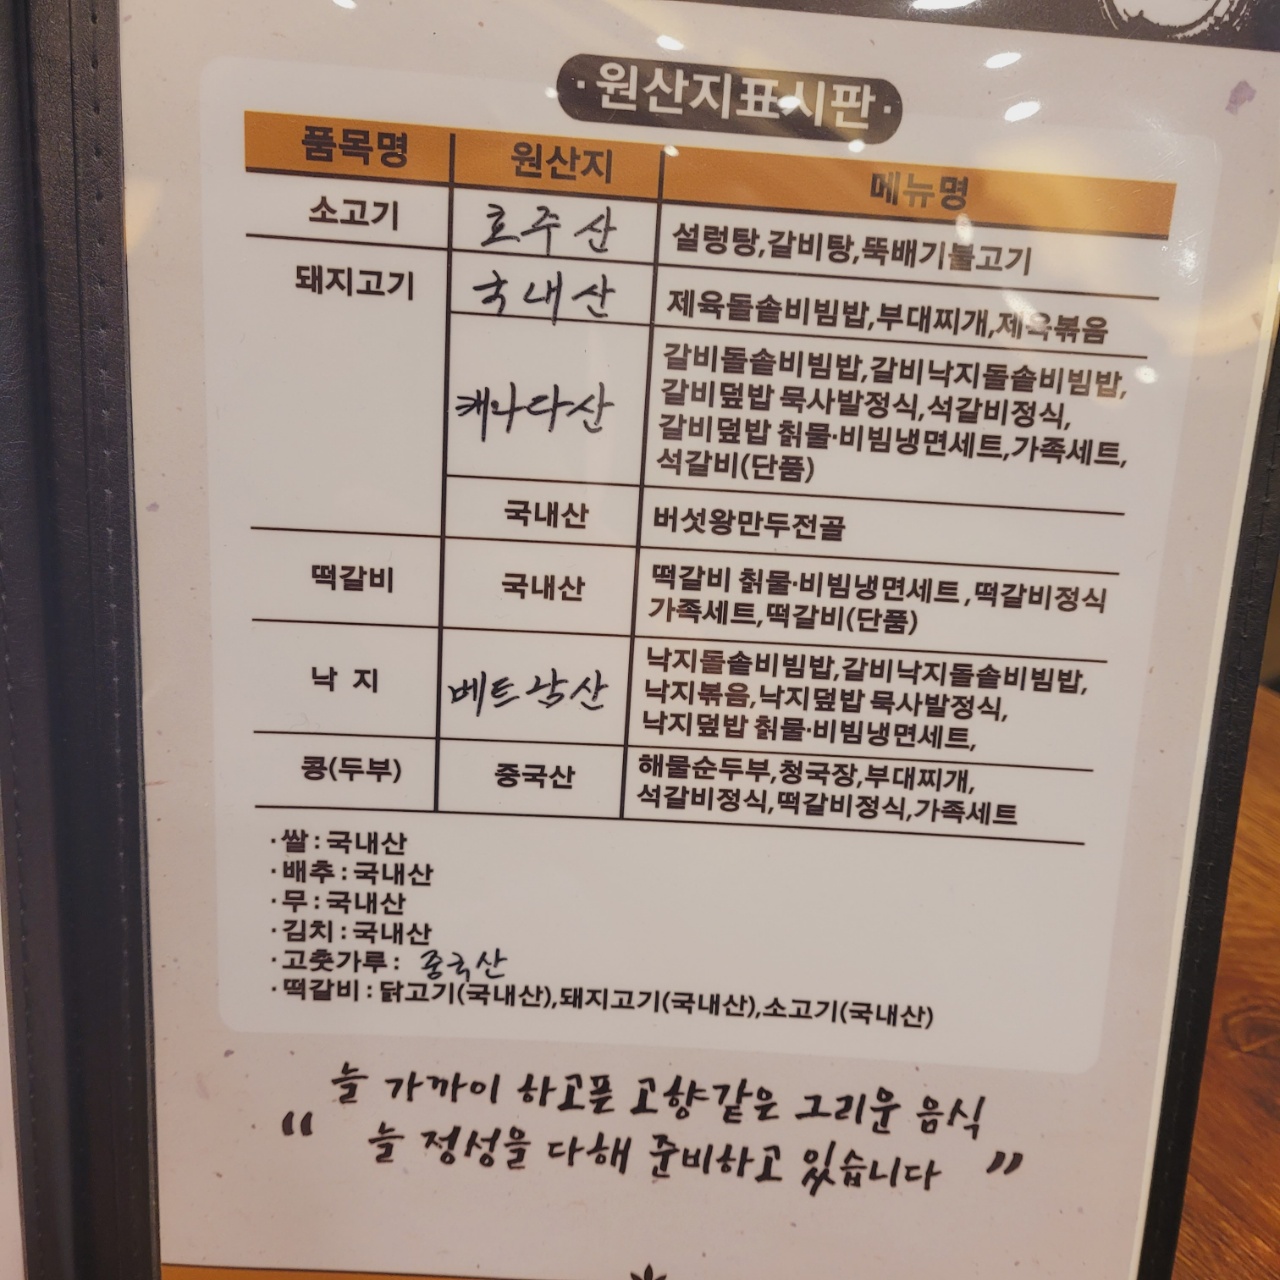 ·원산지표시판·
품목명 원산지 메뉴명
소고기 호주산 설렁탕,갈비탕,뚝배기불고기
돼지고기 국내산 제육돌솥비빔밥,부대찌개,제육볶음
캐나다산 갈비돌솥비빔밥,갈비낙지돌솥비빔밥,
갈비덮밥 묵사발정식,석갈비정식,
갈비덮밥 칡물·비빔냉면세트,가족세트,
석갈비(단품)
국내산 버섯왕만두전골
떡갈비 국내산 떡갈비 칡물·비빔냉면세트,떡갈비정식
가족세트,떡갈비(단품)
낙 지 베트남산 낙지돌솥비빔밥,갈비낙지돌솥비빔밥,
낙지볶음,낙지덮밥 묵사발정식,
낙지덮밥 칡물·비빔냉면세트,
콩(두부) 중국산 해물순두부,청국장,부대찌개,
석갈비정식,떡갈비정식,가족세트
·쌀:국내산
·배추:국내산
·무:국내산
·김치:국내산
·고춧가루: 중국산
·떡갈비:닭고기(국내산),돼지고기(국내산),소고기(국내산)
늘 가까이 하고픈 고향같은 그리운 음식
“ 늘 정성을 다해 준비하고 있습니다 ”